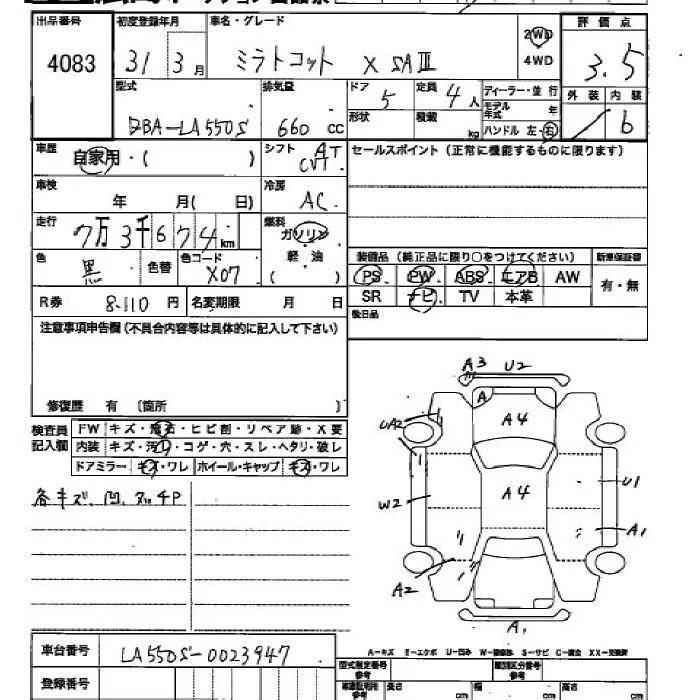 出品番号 初度登録年月 車名・グレード 評価点
4083 31 3月 ミラトコット X SAⅢ 2WD 4WD 3.5
型式 排気量 ドア 定員 ディーラー・並行 外装 内装
DBA-LA550S 660 cc 5 4人 モデル年式 年 / 6
形状 積載 kg ハンドル 左・右
車歴 自家用・( ) シフト AT CVT セールスポイント (正常に機能するものに限ります)
車検 年 月( 日) 冷房 AC
走行 7万3千674km 燃料 ガソリン 軽油 ( )
色 黒 色替 色コード X07
装備品 (純正品に限り○をつけてください) 新車保証書
PS PW ABS エアB AW 有・無
SR ナビ TV 本革
R券 8,110円 名変期限 月 日
後日品
注意事項申告欄 (不具合内容等は具体的に記入して下さい)
修復歴 有 〔箇所 〕
検査員記入欄 FW キズ・飛石・ヒビ割・リペア跡・X要
内装 キズ・汚レ・コゲ・穴・スレ・ヘタリ・破レ
ドアミラー キズ・ワレ ホイール・キャップ キズ・ワレ
各キズ、凹、
A3 U2
A
A4
UA2
A4
W2
U1
A1
A2
A1
車台番号 LA550S-0023947
登録番号
A-キズ E-エクボ U-凹み W-補修跡 S-サビ C-腐食 XX-交換済
型式指定番号 参考 類別区分番号 参考
車庫証明用 参考 長さ cm 幅 cm 高さ cm